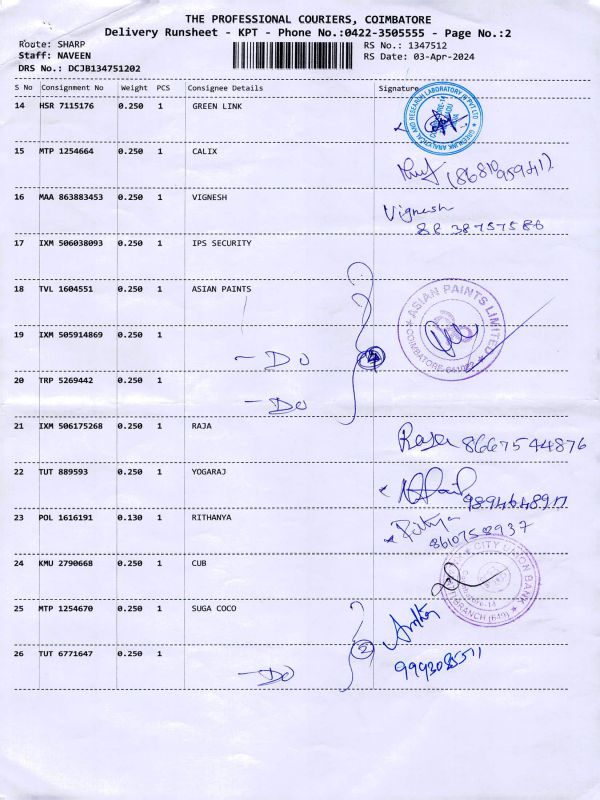 THE PROFESSIONAL COURIERS, COIMBATORE
Delivery Runsheet - KPT - Phone No.:0422-3505555 - Page No.:2
Route: SHARP
RS No.: 1347512
Staff: NAVEEN
RS Date: 03-Apr-2024
DRS No.: DCJB134751202
S No Consignment No Weight PCS Consignee Details Signature
14 HSR 7115176 0.250 1 GREEN LINK
15 MTP 1254664 0.250 1 CALIX
16 MAA 863883453 0.250 1 VIGNESH
Vignesh
88 38757586
17 IXM 506038093 0.250 1 IPS SECURITY
18 TVL 1604551 0.250 1 ASIAN PAINTS
ASIAN PAINTS LIMITED
COIMBATORE-641022
19 IXM 505914869 0.250 1
- Do
20 TRP 5269442 0.250 1
- Do
21 IXM 506175268 0.250 1 RAJA
Raja 8667544876
22 TUT 889593 0.250 1 YOGARAJ
23 POL 1616191 0.130 1 RITHANYA
8610758937
24 KMU 2790668 0.250 1 CUB
CITY UNION BANK
25 MTP 1254670 0.250 1 SUGA COCO
2
26 TUT 6771647 0.250 1
- Do